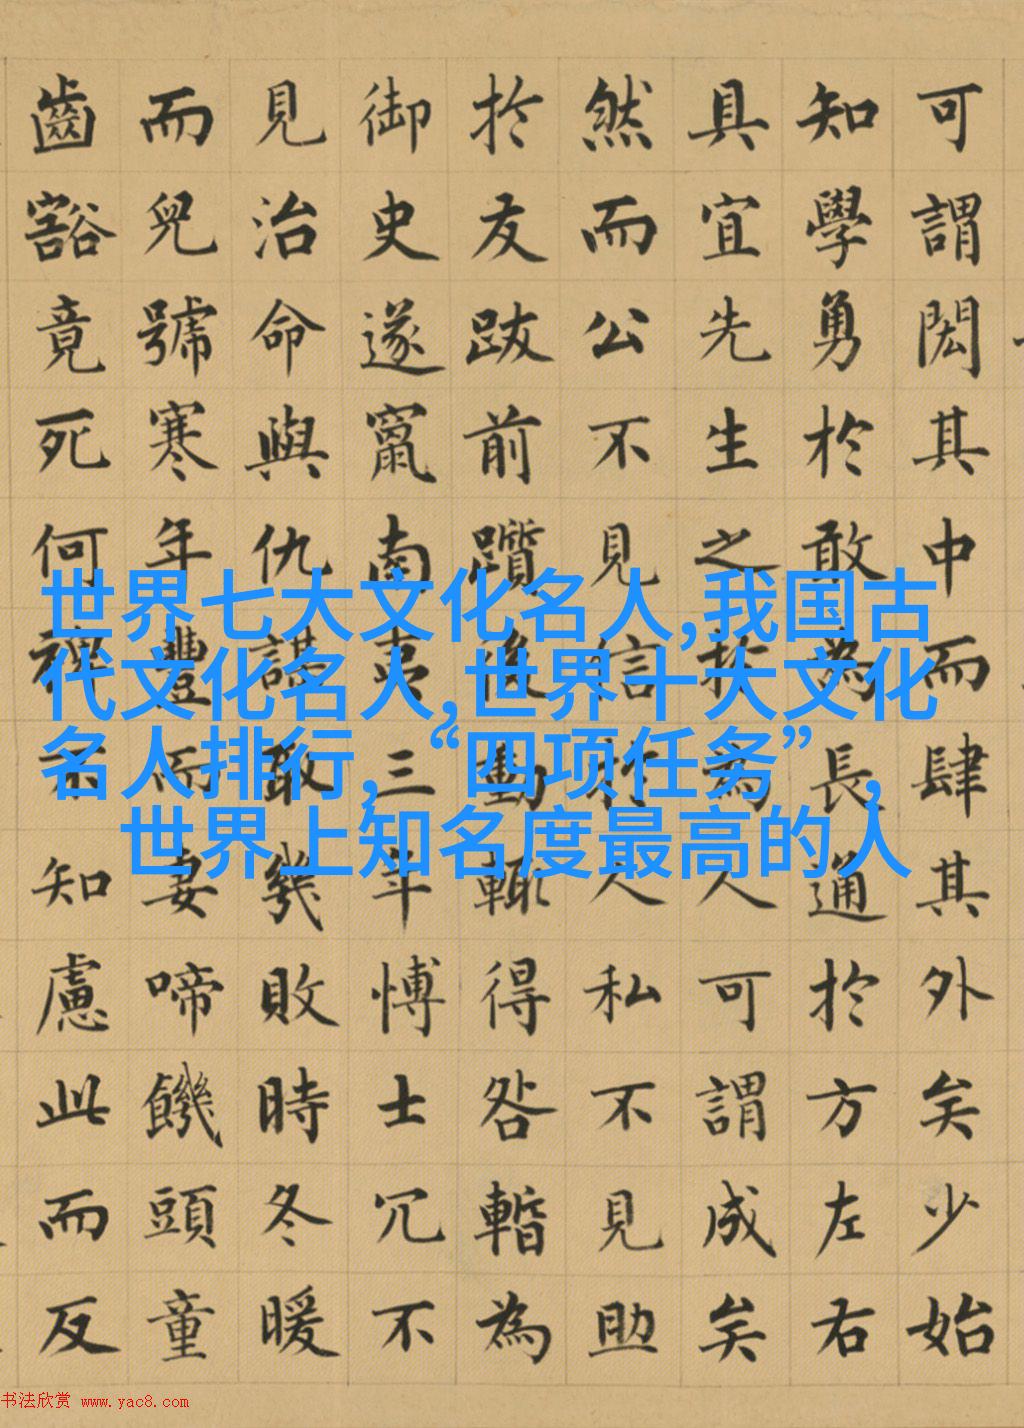 可謂閎其中而肆其外矣少始
知學勇於敢為長通於方左右
具宜先生之於為人可謂成矣
然而公不見信於人私不見助
於友跋前躓後動輒得咎暫為
御史遂竄南夷三年愽士冗不
見治命與仇謀取幾敗時冬暖
而兒號寒年豐而妻啼饑頭童
齒豁竟死何裨不知慮此而反
世界七大文化名人,我国古
代文化名人,世界十大文化
名人排行,“四项任务”,
世界上知名度最高的人
书法欣赏 www.yac8.com